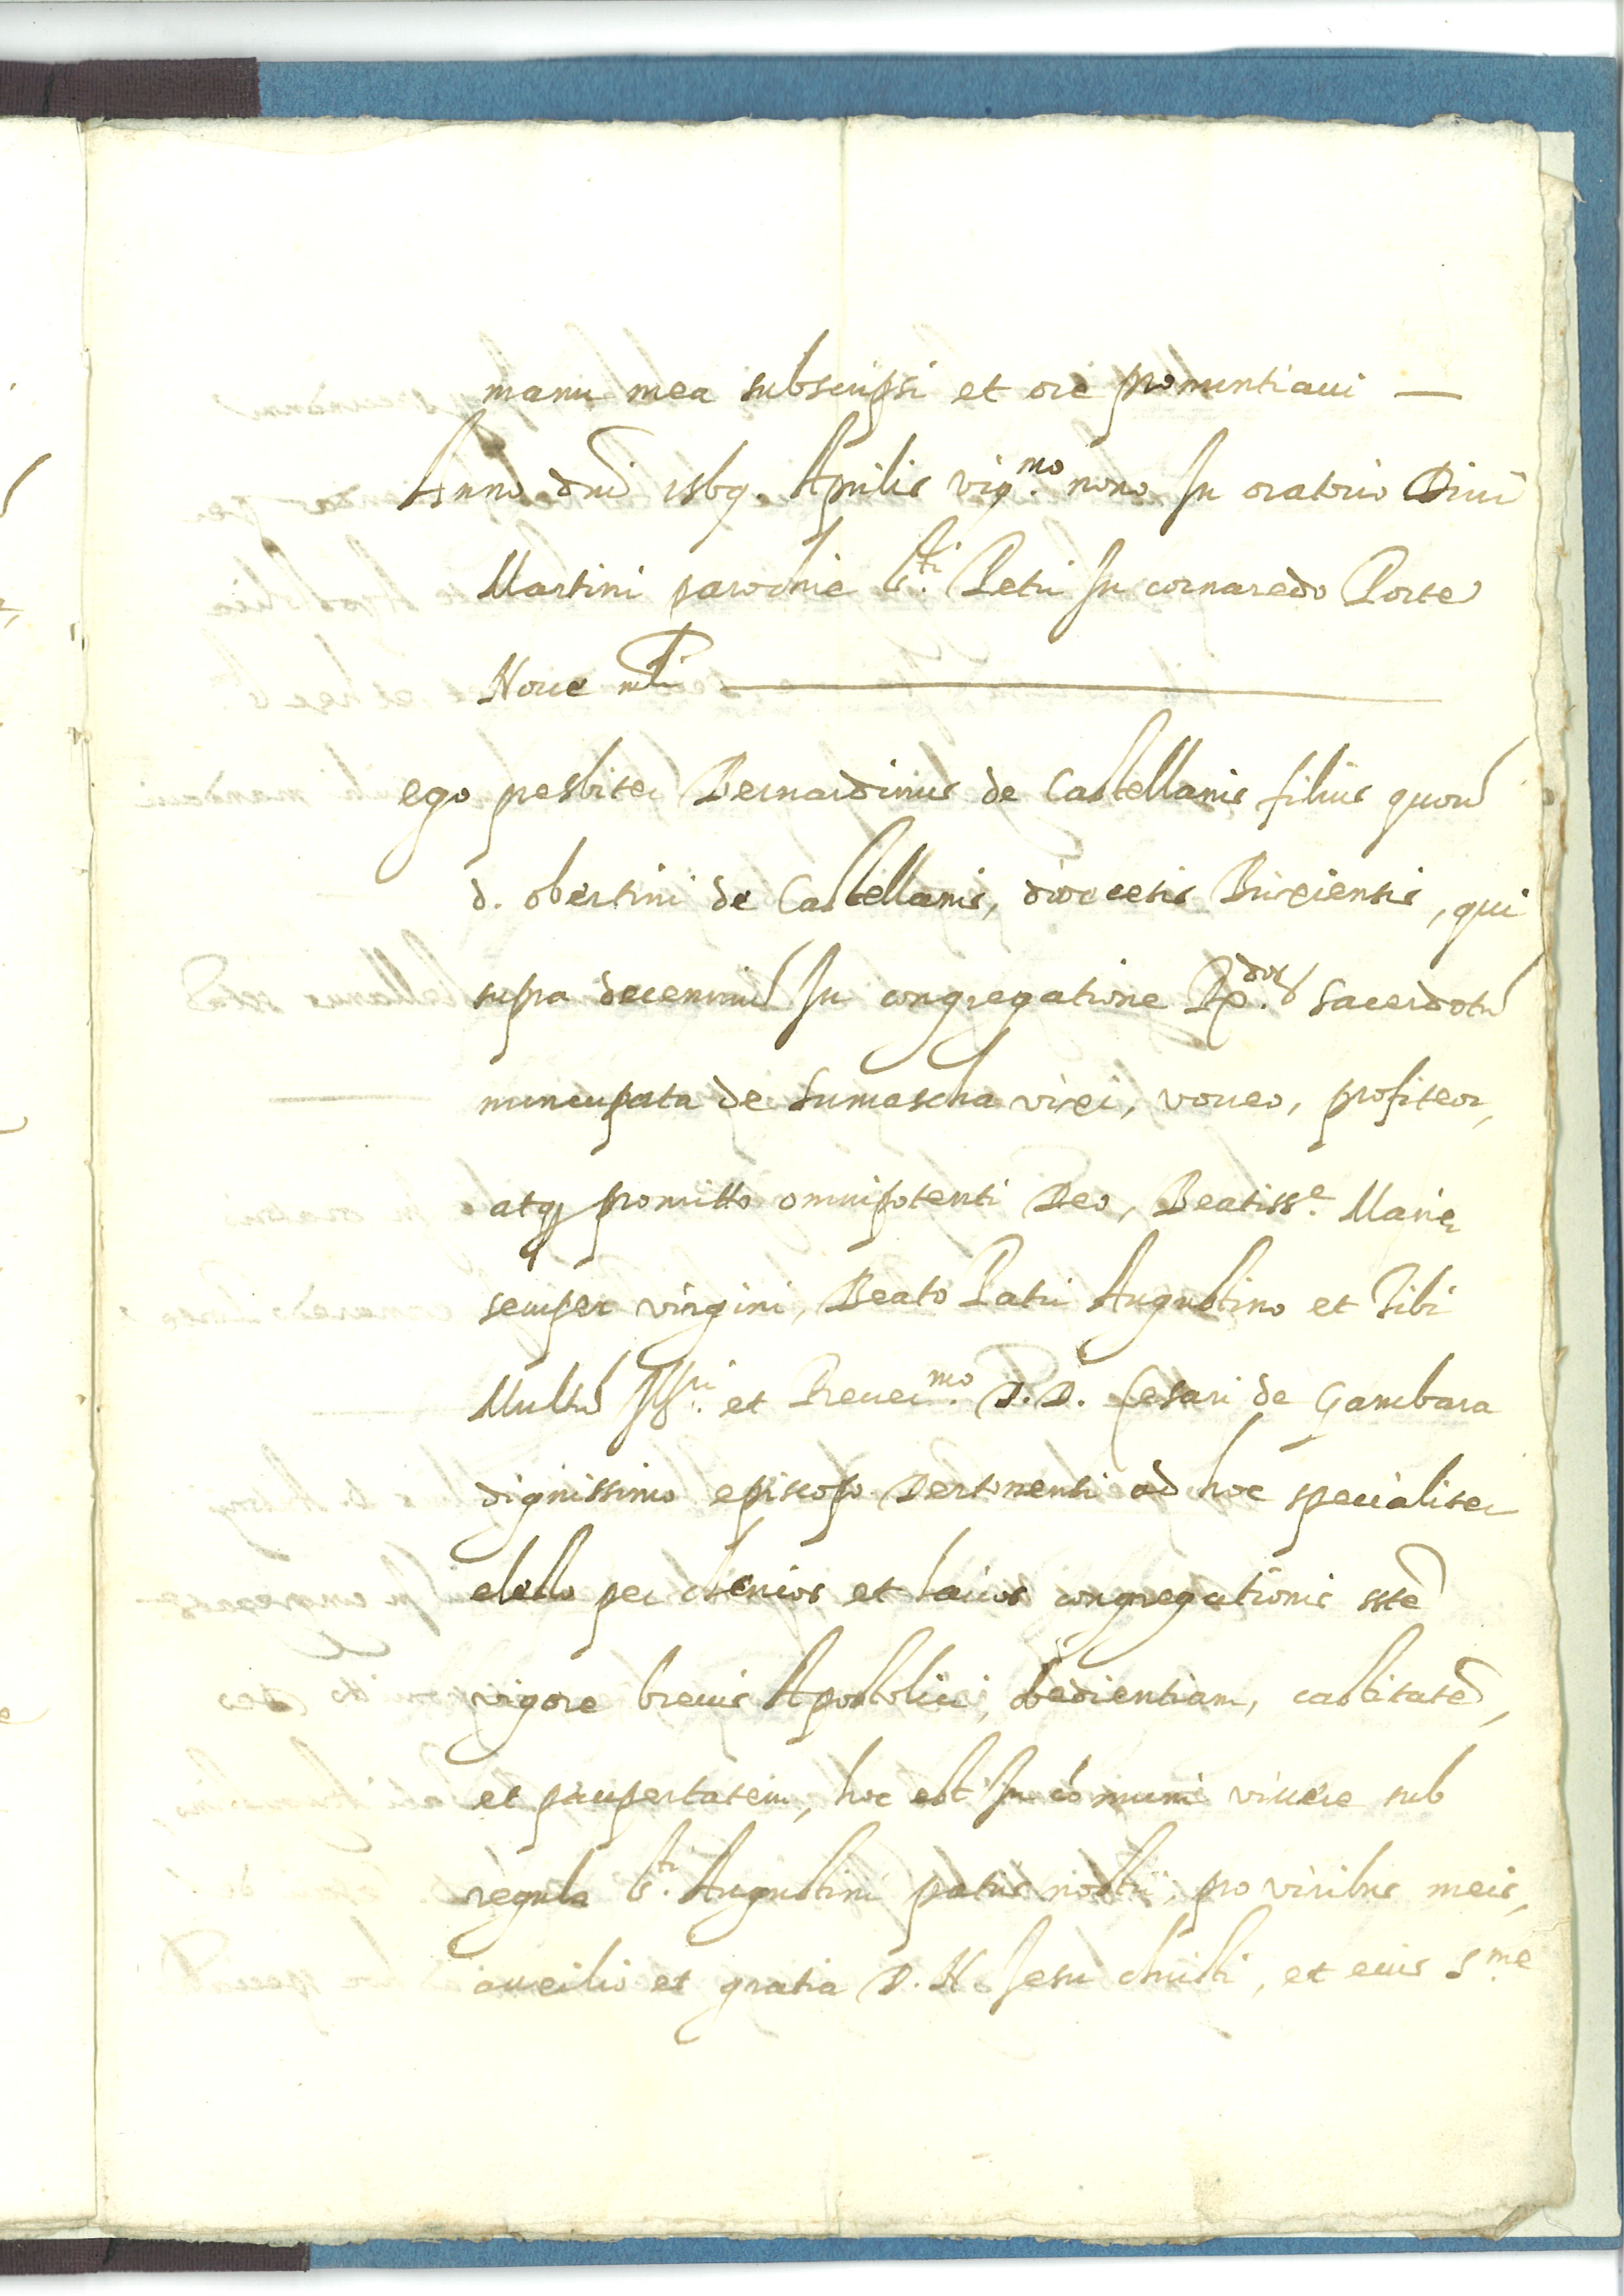 manu mea subscripsi et ore pronuntiaui —
Anno dni 1569. Aprilis vig.mo nono In oratorio Diui
Martini parochie S.ti Petri In cornaredo Porte
Noue mli
ego presbiter Bernardinus de Castellanis filius quon
d. obertini de Castellanis, diocesis Brixiensis, qui
supra decenniu In congregatione R.dor Sacerdotu
nuncupata de Sumascha vixi, voueo, profiteor,
atq promitto omnipotenti Deo, Beatiss.e Marie
semper virgini, Beato Patri Augustino et Tibi
Multu Ill.ri et Reuer.mo D.D. Cesari de Gambara
dignissimo episcopo Dertonensi ad hoc specialiter
electo per clericos et laicos congregationis sste
vigore breuis Apostolici, obedientiam, castitate,
et paupertatem, hoc est In comuni viuere sub
regula S.ti Augustini patris nostri, pro viribus meis,
auxilio et gratia D. N. Jesu christi, et eius S.me